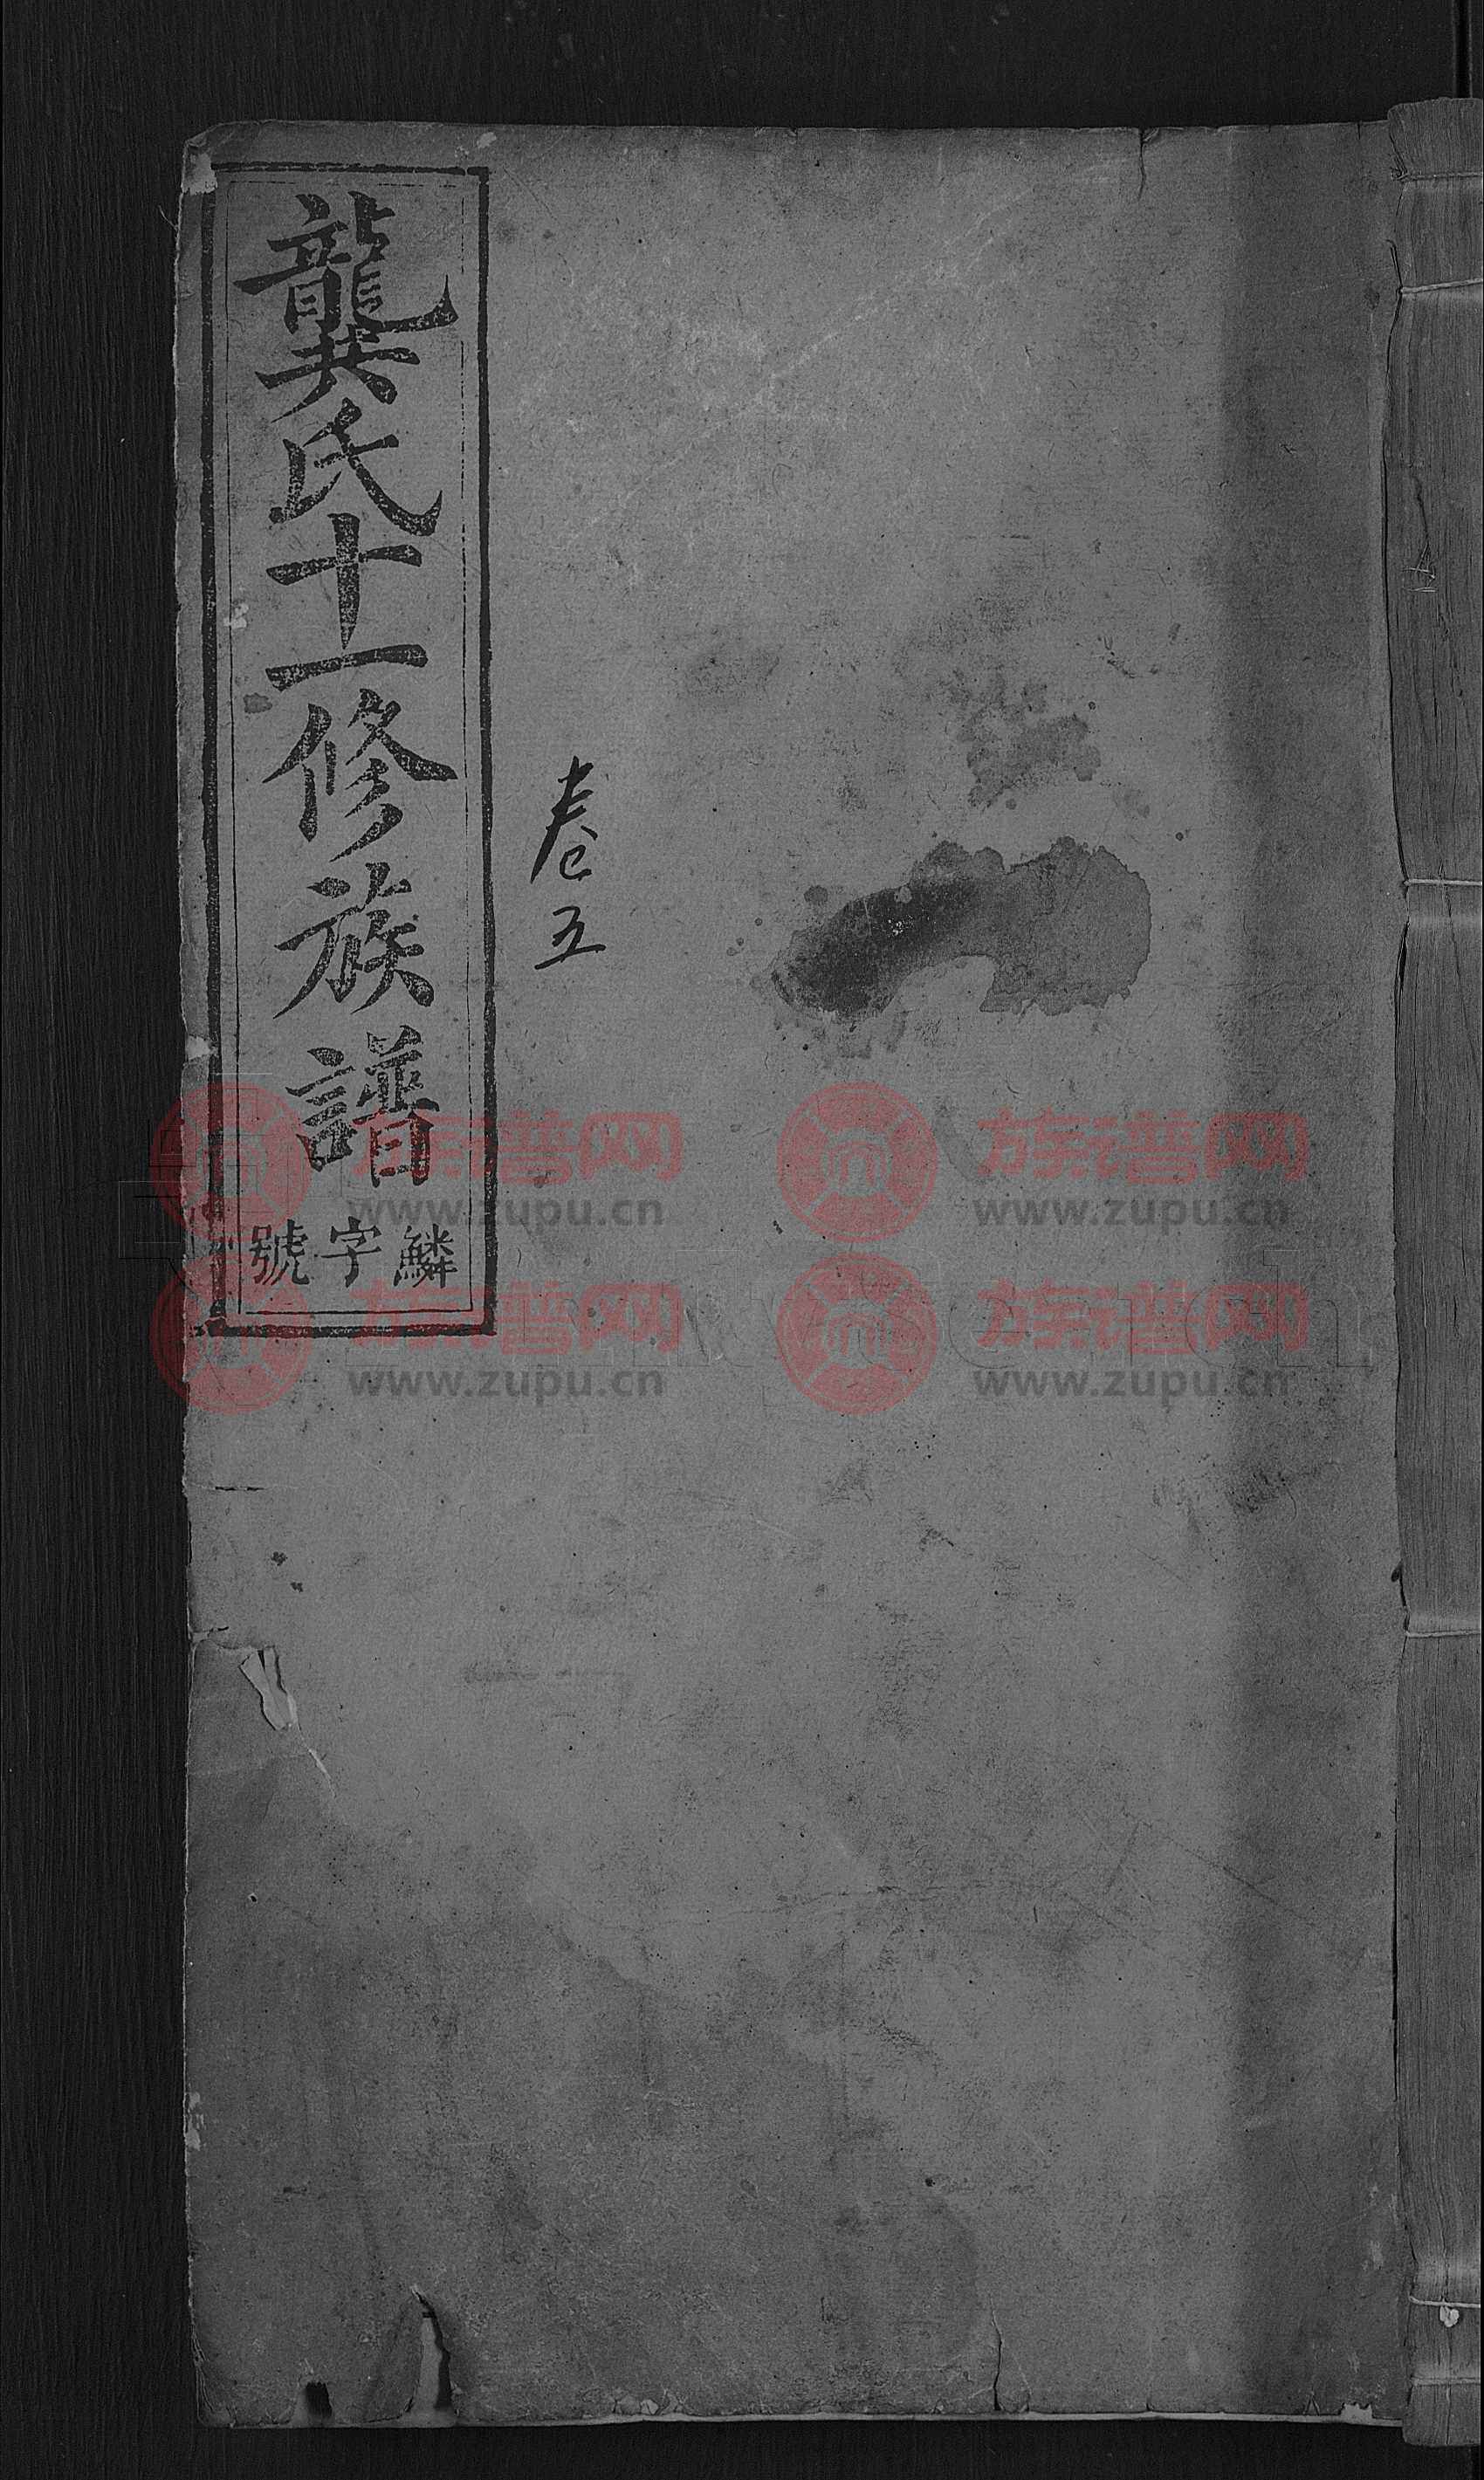 龔氏十一修族譜
鱗字號
卷五
族谱网 族谱网
www.zupu.cn www.zupu.cn
族谱网 族谱网
www.zupu.cn www.zupu.cn